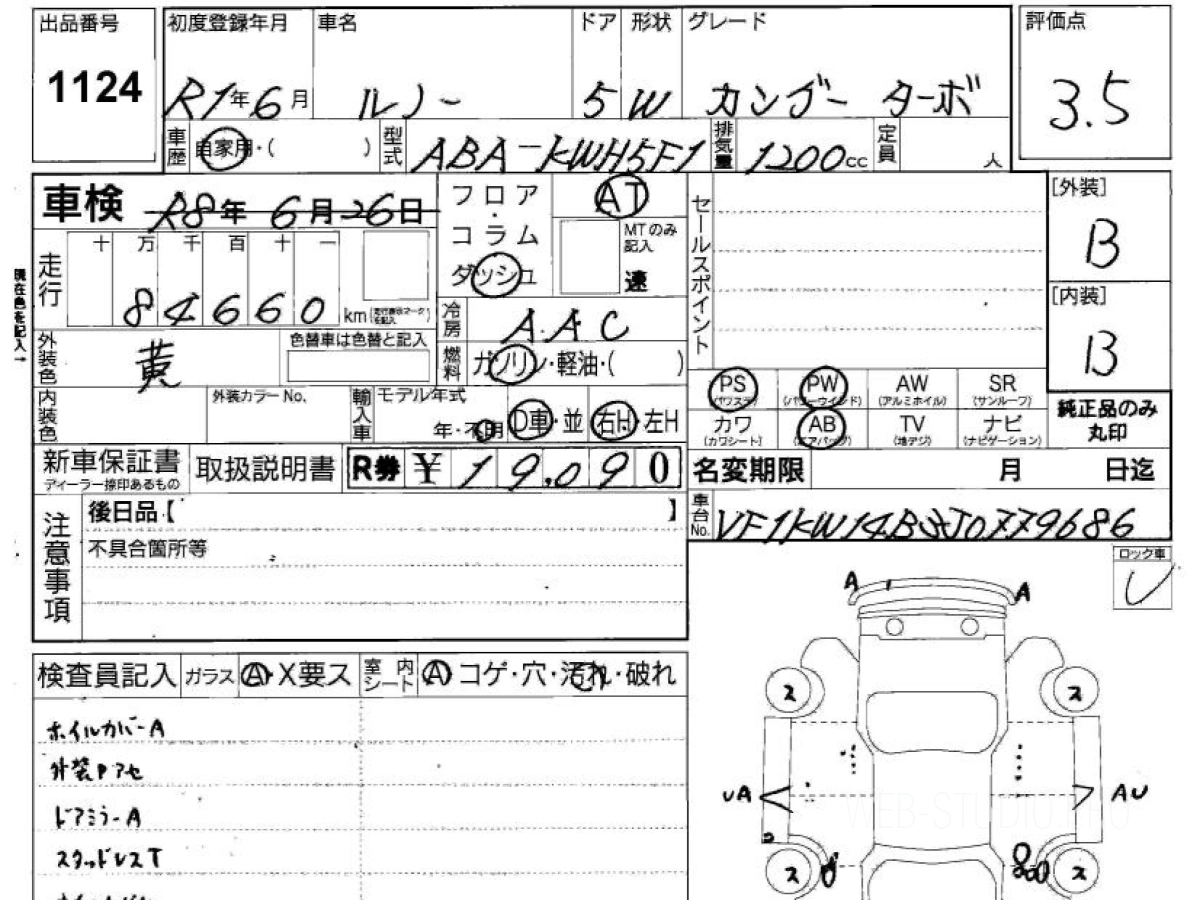 出品番号 初度登録年月 車名 ドア 形状 グレード 評価点
1124 R1年6月 ルノー 5 W カングー ターボ 3.5
車歴 自家用・( ) 型式 ABA-KWH5F1 排気量 1200cc 定員 人
車検 R8年6月26日 フロア・コラム ダッシュ AT セールスポイント [外装]
B
MTのみ記入 速
十 万 千 百 十 一
現在色を記入→
走行 84660 km [内装]
B
冷房 AAC
外装色 黄 色替車は色替と記入 燃料 ガソリン・軽油・( )
PS (パワステ) PW (パワーウインド) AW (アルミホイル) SR (サンルーフ)
内装色 外装カラーNo. 輸入車 モデル年式 年・不明 D車・並 右H・左H カワ (カワシート) AB (エアバッグ) TV (地デジ) ナビ (ナビゲーション) 純正品のみ丸印
新車保証書 ディーラー捺印あるもの 取扱説明書 R券 ¥19,090 名変期限 月 日迄
注意事項 後日品【 】 車台No.
不具合箇所等
ロック車 レ
A A
検査員記入 ガラス A・X要ス 室内シート A コゲ・穴・汚れ・破れ
ス ス
ホイルカバーA
外装Pアセ
UA AU
ドアミラーA
WEB-STUDIO.PRO
スタッドレスT
ス ス